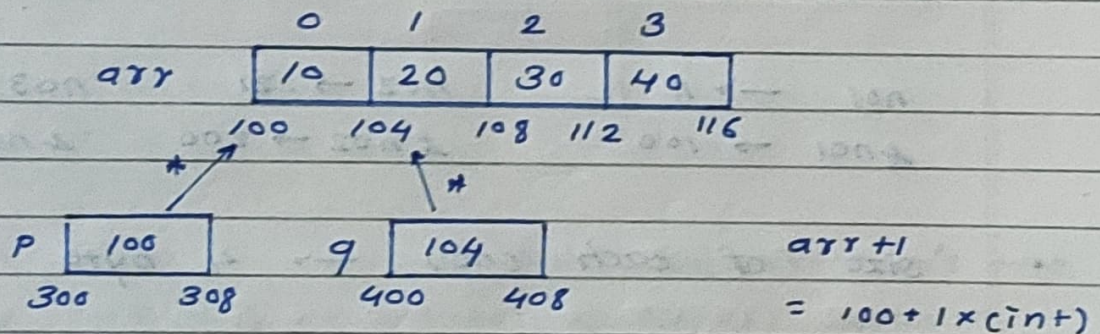 0 1 2 3
arr 10 20 30 40
100 104 108 112 116
* *
P 100 q 104 arr +1
300 308 400 408
= 100 + 1 x (int)